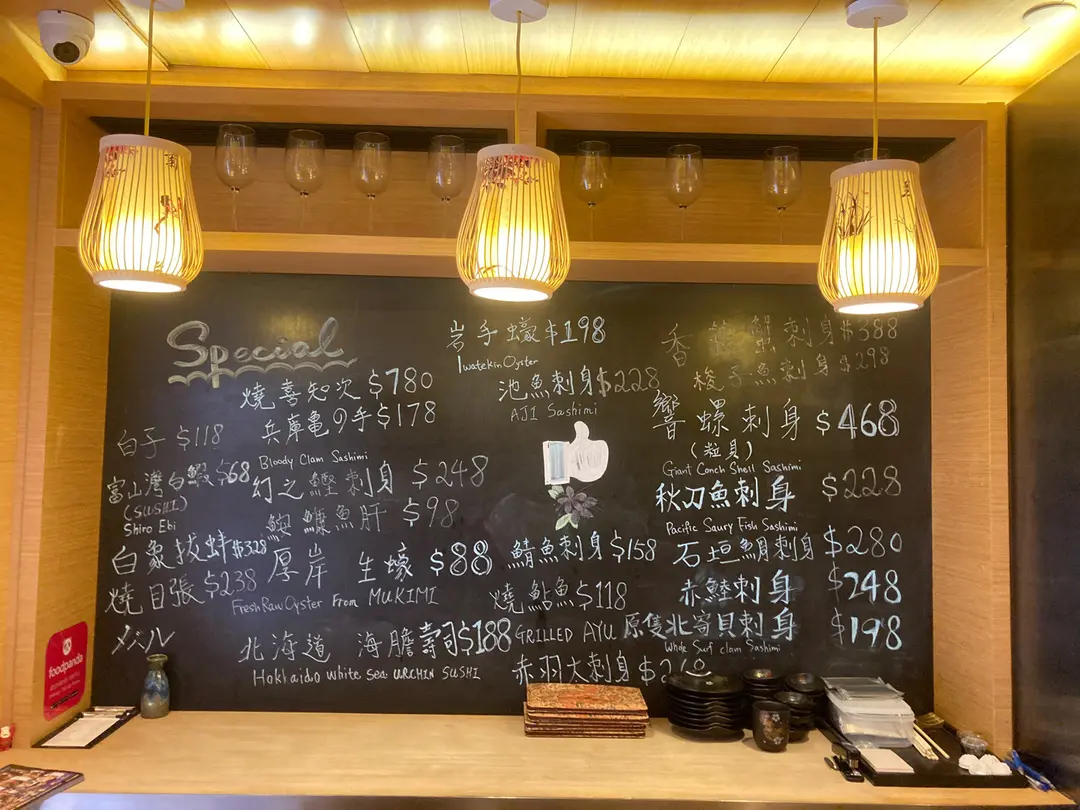 Special
燒喜知次 $780
兵庫亀の手 $178
白子 $118
Bloody Clam Sashimi
富山灣白蝦 $68
(SUSHI)
Shiro Ebi
幻之鰹刺身 $248
鮟鱇魚肝 $98
白象拔蚌 $328
燒目張 $238
メバル
厚岸 生蠔 $88
Fresh Raw Oyster From MUKIMI
北海道 海膽壽司 $188
Hokkaido White Sea URCHIN SUSHI
岩手蠔 $198
Iwatekin Oyster
池魚刺身 $228
AJI Sashimi
鯖魚刺身 $158
燒鮎魚 $118
GRILLED AYU
赤羽太刺身
香 刺身 $388
梭子魚刺身 $298
響螺刺身 $468
Giant Conch Shell Sashimi
秋刀魚刺身 $228
Pacific Saury Fish Sashimi
石垣鯛刺身 $280
赤 刺身 $248
原隻北寄貝刺身 $198
Whole Surf clam Sashimi
foodpanda